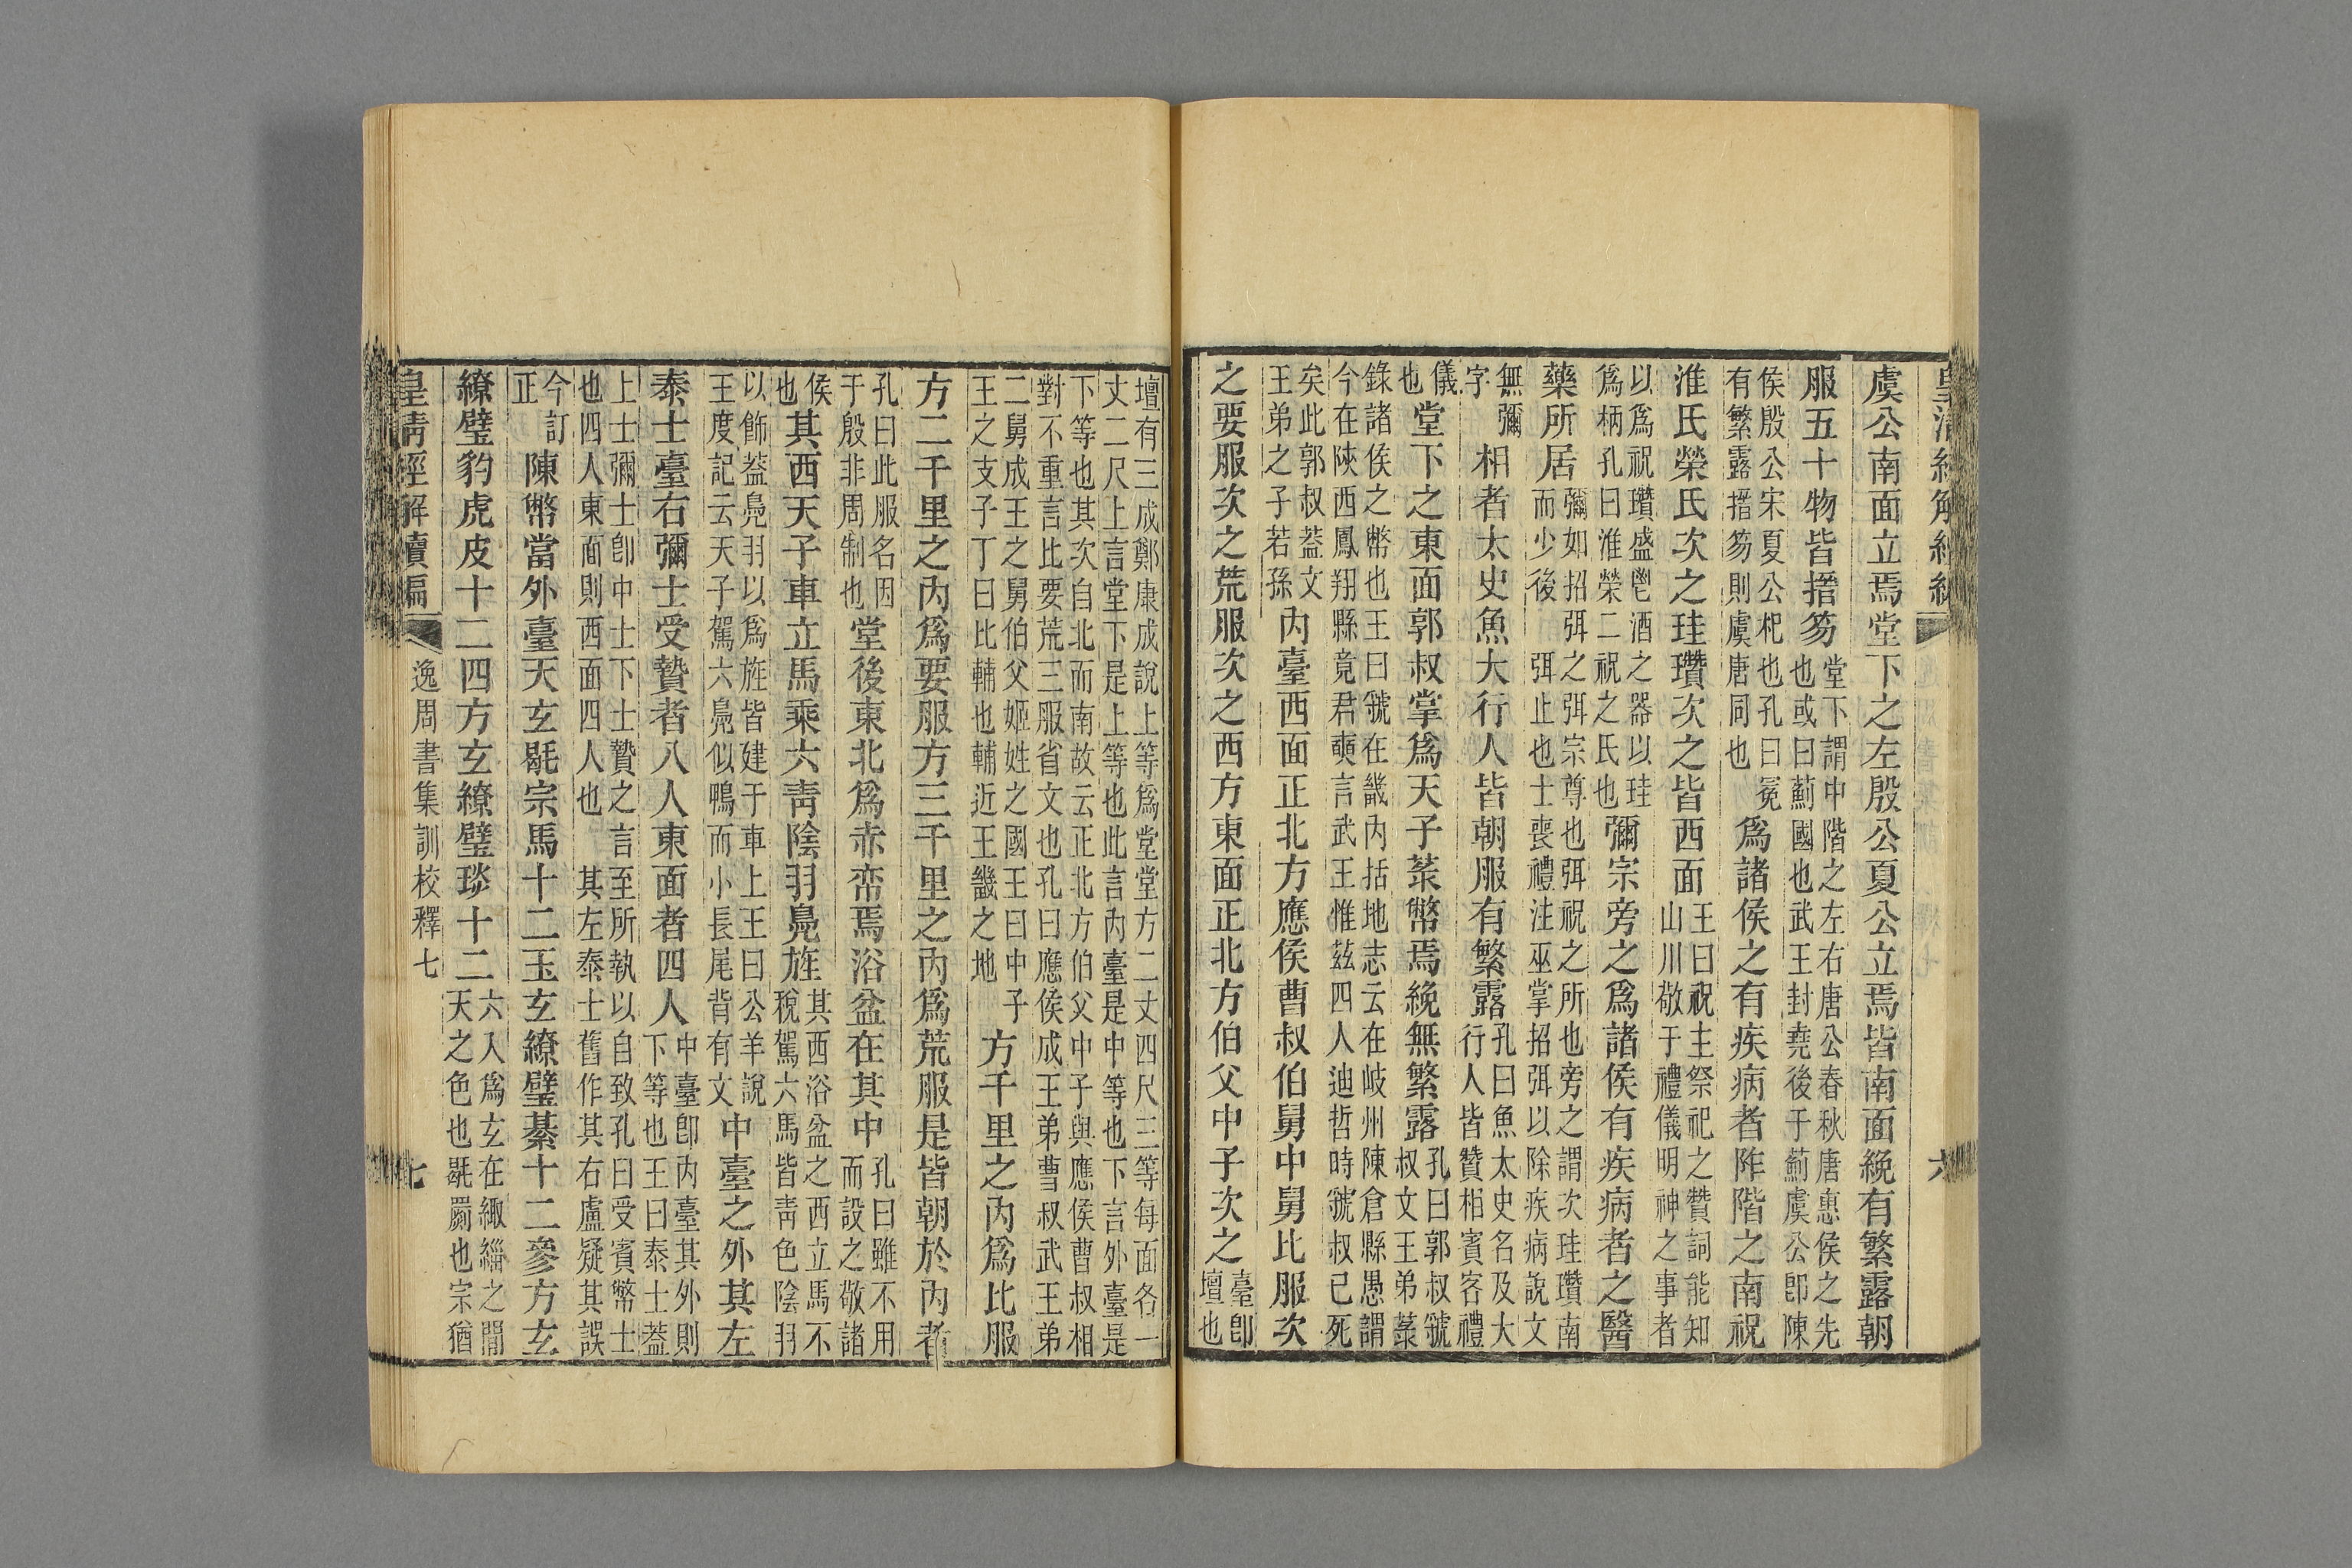 皇清經解續編
六
虞公南面立焉堂下之左殷公夏公立焉皆南面絻有繁露朝
服五十物皆搢笏堂下謂中階之左右唐公春秋唐惠侯之先
也或曰薊國也武王封堯後于薊虞公卽陳
侯殷公宋夏公杞也孔曰冕
有繁露搢笏則虞唐同也爲諸侯之有疾病者阼階之南祝
淮氏榮氏次之珪瓚次之皆西面王曰祝主祭祀之贊詞能知
山川敬于禮儀明神之事者
以爲祝瓚盛鬯酒之器以珪
爲柄孔曰淮榮二祝之氏也彌宗旁之爲諸侯有疾病者之醫
藥所居彌如招弭之弭宗尊也弭祝之所也旁之謂次珪瓚南
而少後 弭止也士喪禮注巫掌招弭以除疾病說文
無彌
字相者太史魚大行人皆朝服有繁露孔曰魚太史名及大
行人皆贊相賓客禮
儀
也堂下之東面郭叔掌爲天子菉幣焉絻無繁露孔曰郭叔虢
叔文王弟菉
錄諸侯之幣也王曰虢在畿內括地志云在岐州陳倉縣愚謂
今在陝西鳳翔縣竟君奭言武王惟茲四人迪哲時虢叔已死
矣此郭叔蓋文
王弟之子若孫內臺西面正北方應侯曹叔伯舅中舅比服次
之要服次之荒服次之西方東面正北方伯父中子次之臺卽
壇也
壇有三成鄭康成說上等爲堂堂方二丈四尺三等每面各一
丈二尺上言堂下是上等也此言內臺是中等也下言外臺是
下等也其次自北而南故云正北方伯父中子與應侯曹叔相
對不重言比要荒三服省文也孔曰應侯成王弟曹叔武王弟
二舅成王之舅伯父姬姓之國王曰中子
王之支子丁曰比輔也輔近王畿之地方千里之內爲比服
方二千里之內爲要服方三千里之內爲荒服是皆朝於內者
孔曰此服名因
于殷非周制也堂後東北爲赤帟焉浴盆在其中孔曰雖不用
而設之敬諸
侯
也其西天子車立馬乘六靑陰羽鳧旌其西浴盆之西立馬不
稅駕六馬皆靑色陰羽
以飾蓋鳧羽以爲旌皆建于車上王曰公羊說
王度記云天子駕六鳧似鴨而小長尾背有文中臺之外其左
泰士臺右彌士受贄者八人東面者四人中臺卽內臺其外則
下等也王曰泰士蓋
上士彌士卽中士下士贄之言至所執以自致孔曰受賓幣士
也四人東面則西面四人也 其左泰士舊作其右盧疑其誤
今訂
正陳幣當外臺天玄毼宗馬十二玉玄繚璧綦十二參方玄
繚璧豹虎皮十二四方玄繚璧琰十二六入爲玄在緅緇之閒
天之色也毼罽也宗猶
皇淸經解續編
逸周書集訓校釋七
七